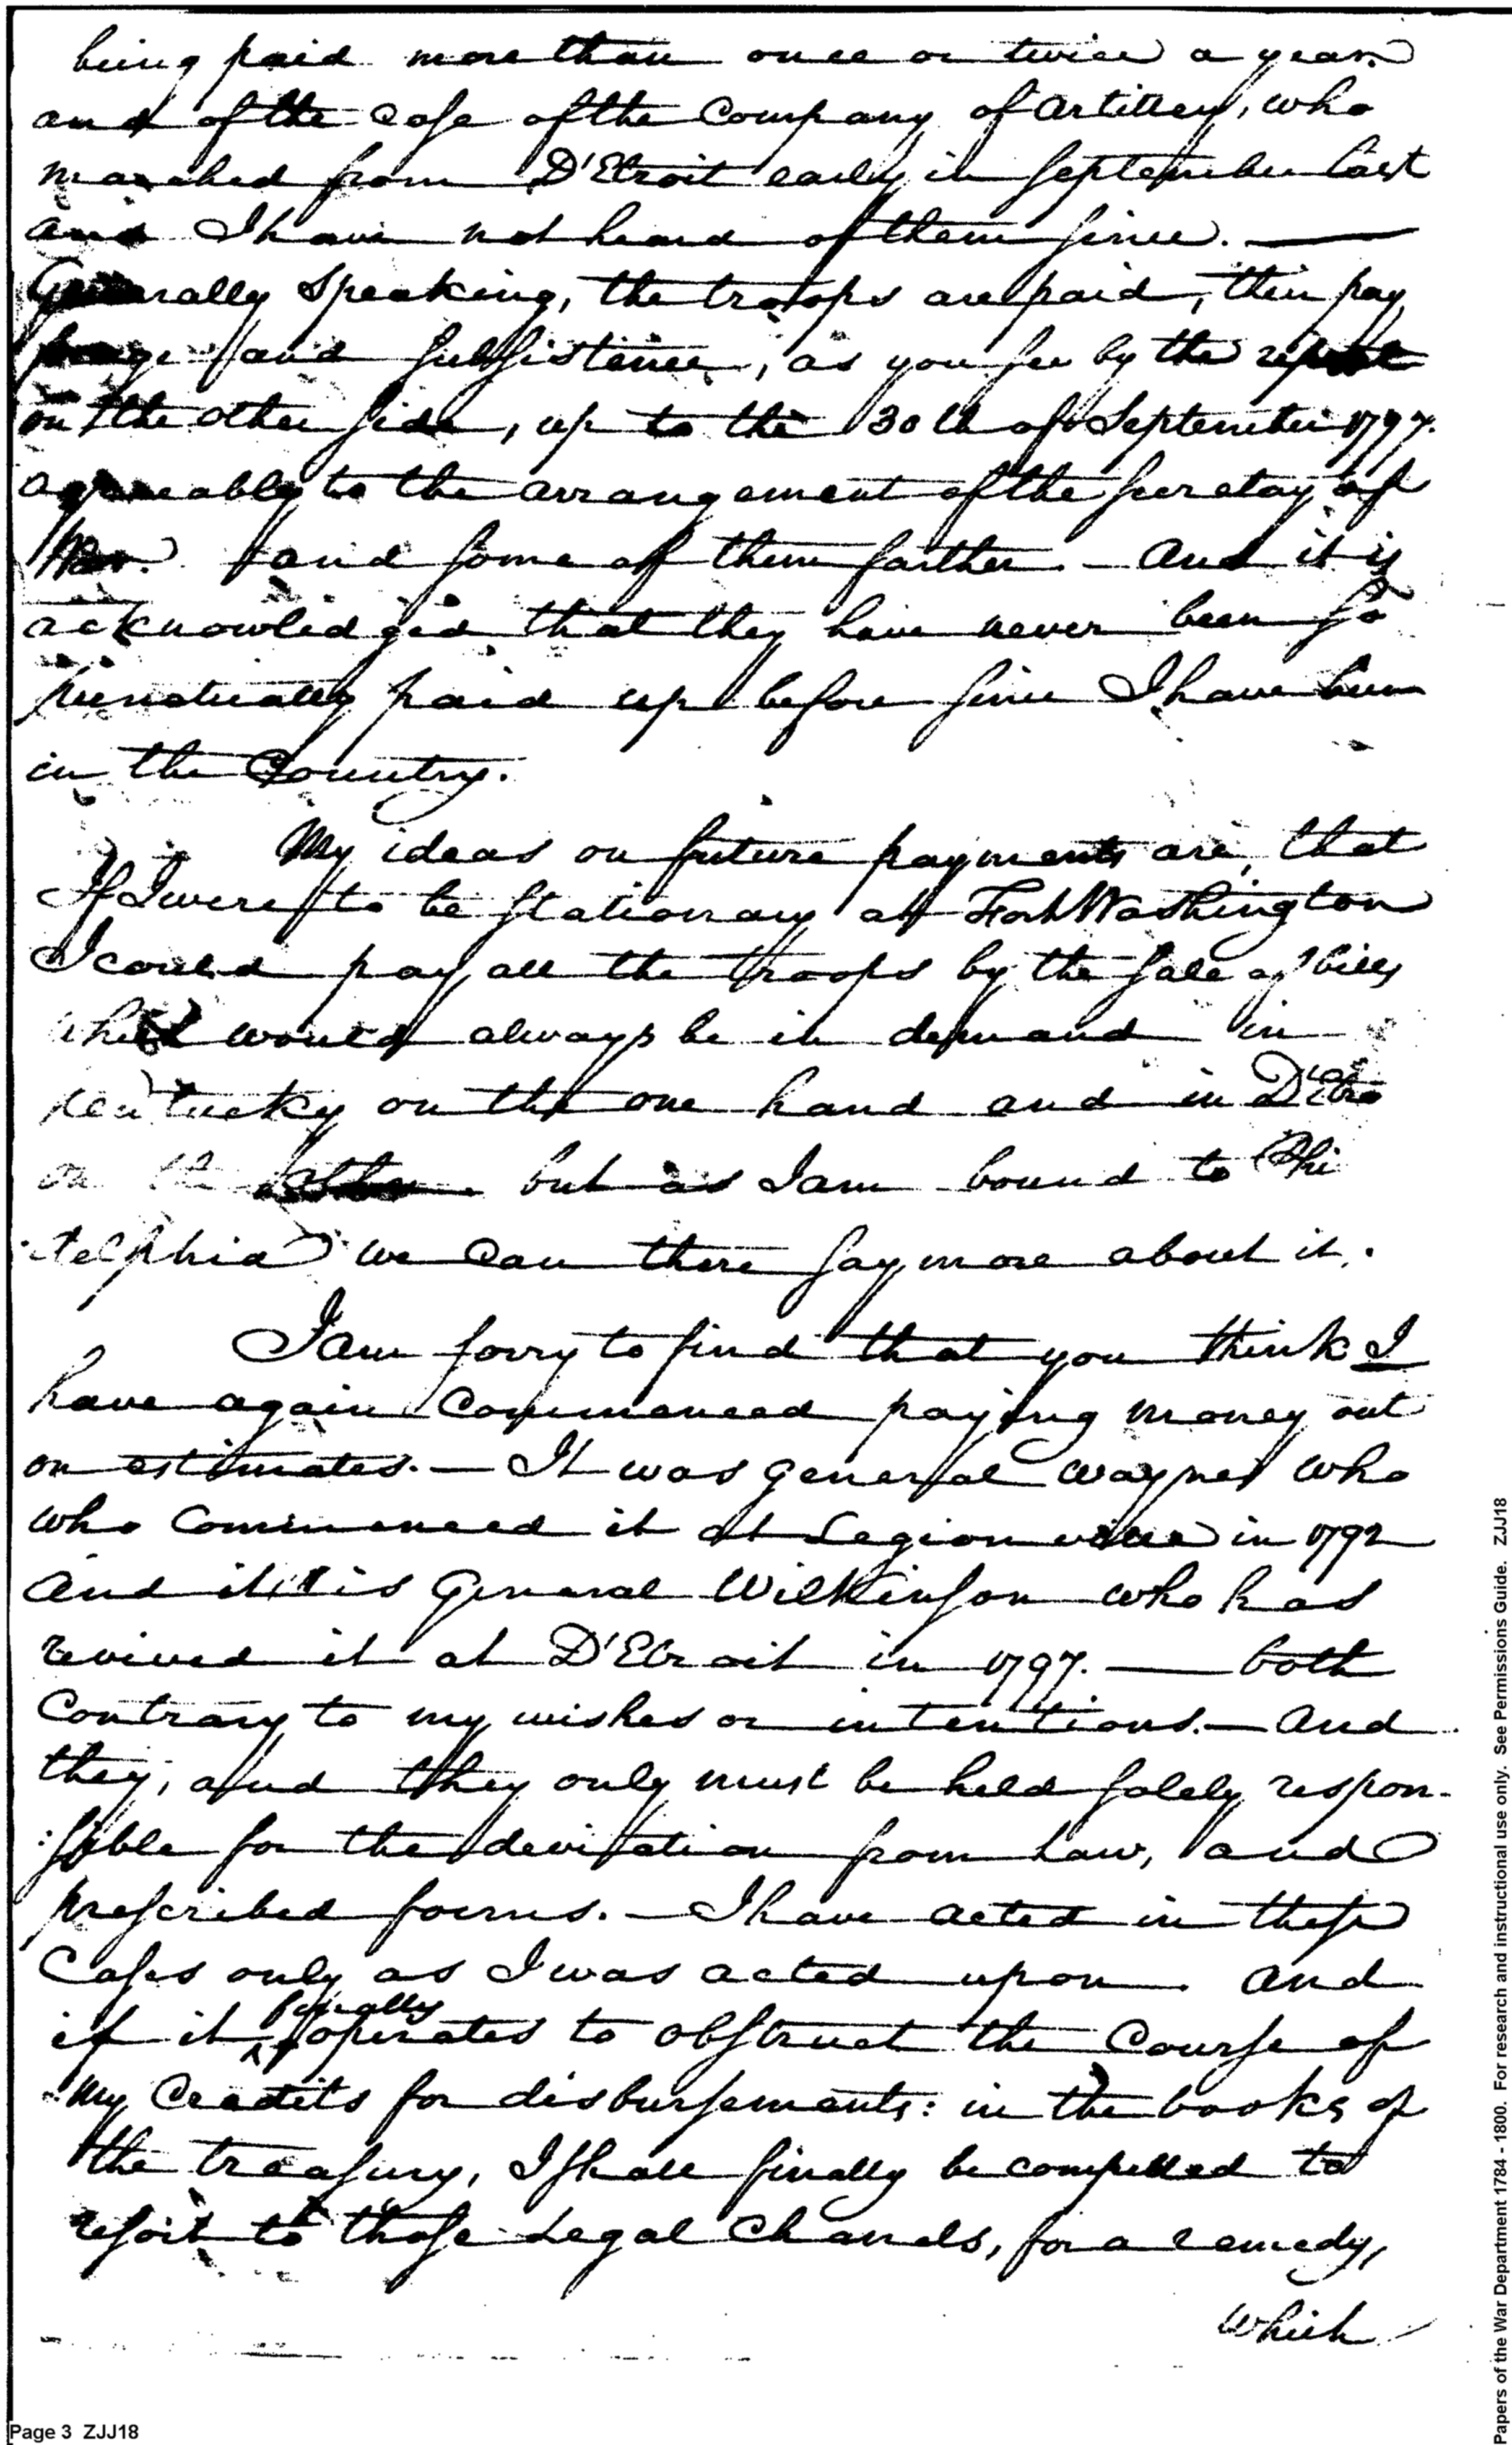 being paid more than once or twice a year.
and of the case of the Company of Artillery, who
marched from D'Etroit early in September last
and I have not heard of them since. —
Generally Speaking, the troops are paid, their pay
forage and subsistence, as you see by the report
on the other side, up to the 30th of September 1797.
agreeably to the arrangement of the secretary of
War. and some of them farther. — And it is
acknowledged that they have never been so
punctually paid up before since I have been
in the Country.
My ideas on future payments are, that
If I were to be stationary at Fort Washington
I could pay all the troops by the sale of bills
which would always be in demand in
Kentucky on the one hand and in
on the other but as I am bound to Phi
delphia we can there say more about it.
I am sorry to find that you think I
have again Commenced paying money out
on estimates. — It was general Wayne who
who Commenced it at Legionville in 1792
And it is General Wilkinson who has
revived it at D'Etroit in 1797. — both
Contrary to my wishes or intentions. — And
they, and they only must be held solely respon-
:sible for the deviation from Law, and
prescribed forms. — I have acted in these
Cases only as I was acted upon. And
if it finally operates to obstruct the Course of
my Credits for disbursements: in the books of
the treasury, I shall finally be compelled to
resort to those Legal Channels, for a remedy,
which
Page 3 ZJJ18
Papers of the War Department 1784 - 1800. For research and instructional use only. See Permissions Guide. ZJJ18